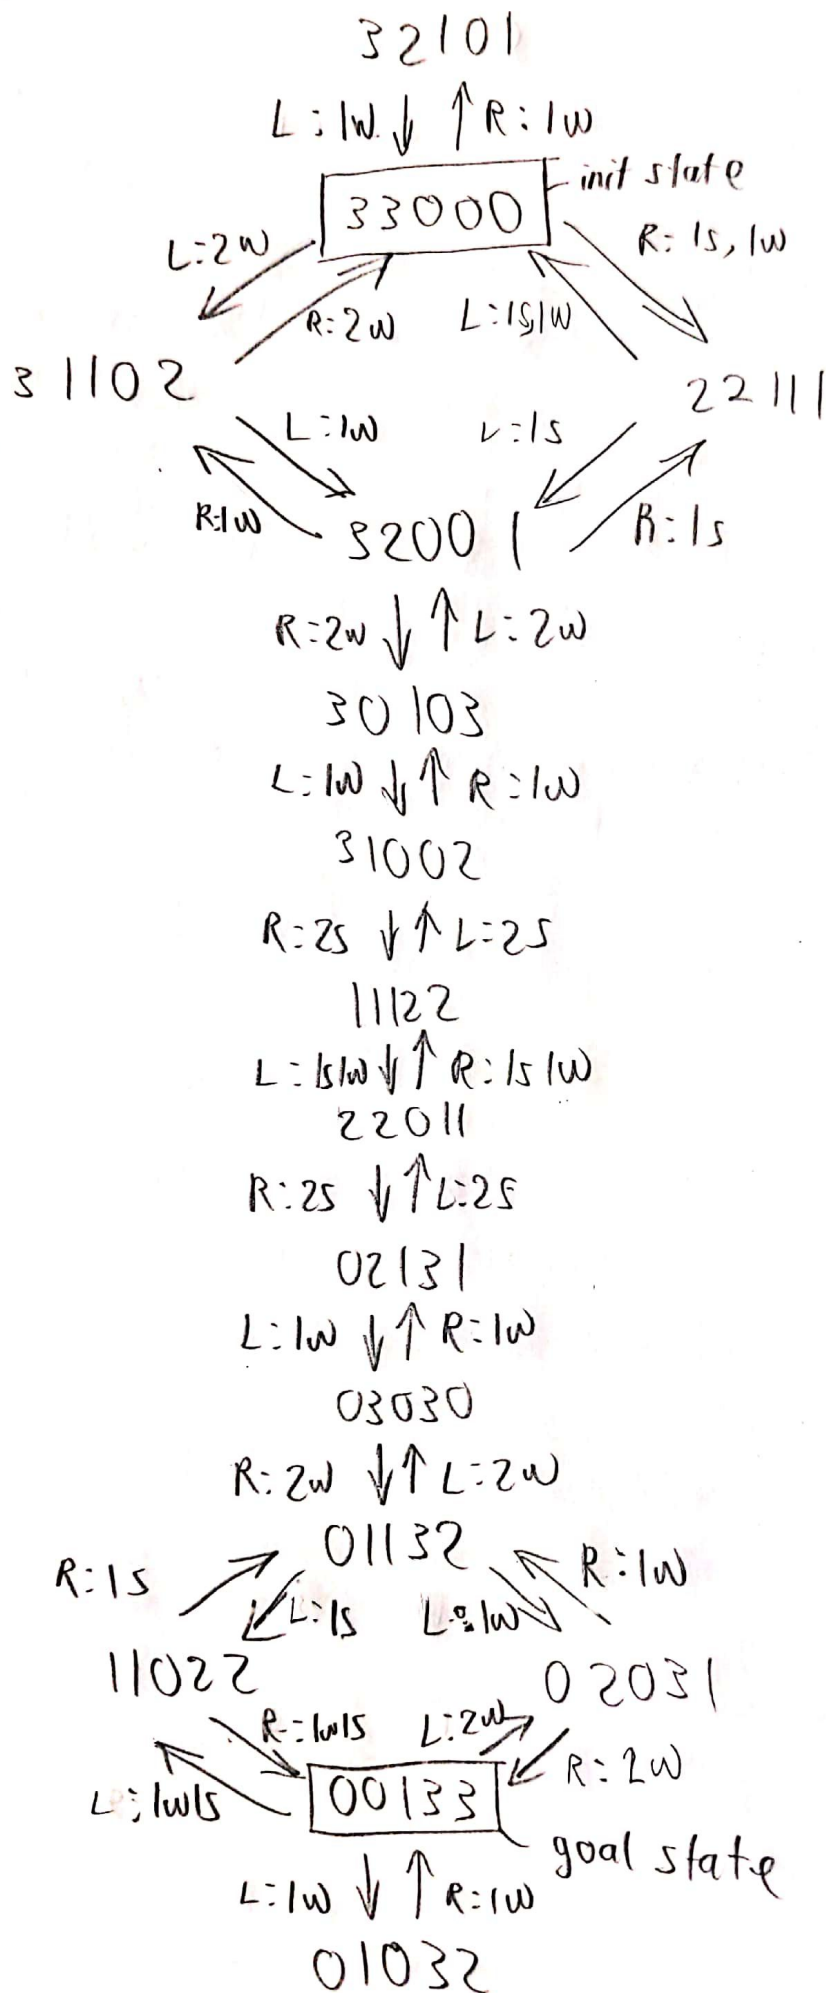 32101
L:1W ↓ ↑ R:1W
33000 init state
L:2W R: 1S, 1W
R:2W L:1S,1W
31102 22111
L:1W L:1S
R:1W R:1S
32001
R:2W ↓ ↑ L:2W
30103
L:1W ↓ ↑ R:1W
31002
R:2S ↓ ↑ L:2S
11122
L:1S1W ↓ ↑ R:1S1W
22011
R:2S ↓ ↑ L:2S
02131
L:1W ↓ ↑ R:1W
03030
R:2W ↓ ↑ L:2W
01132
R:1S R:1W
L:1S L:1W
11022 02031
R:1W1S L:2W
L:1W1S R:2W
00133 goal state
L:1W ↓ ↑ R:1W
01032